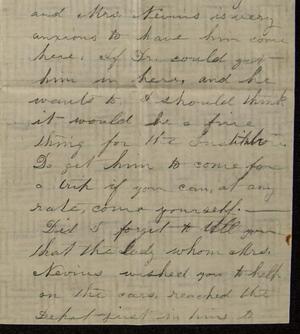 and Mrs. Nevius is very
anxious to have him come
here. If Dr. could get
him in here, and he
wants to, I should think
it would be a fine
thing for the Institute.
Do get him to come for
a trip if you can, at any
rate, come yourself.—
Did I forget to tell you
that the lady whom Mrs.
Nevius wished you to help
on the cars, reached the
Depot just in time to